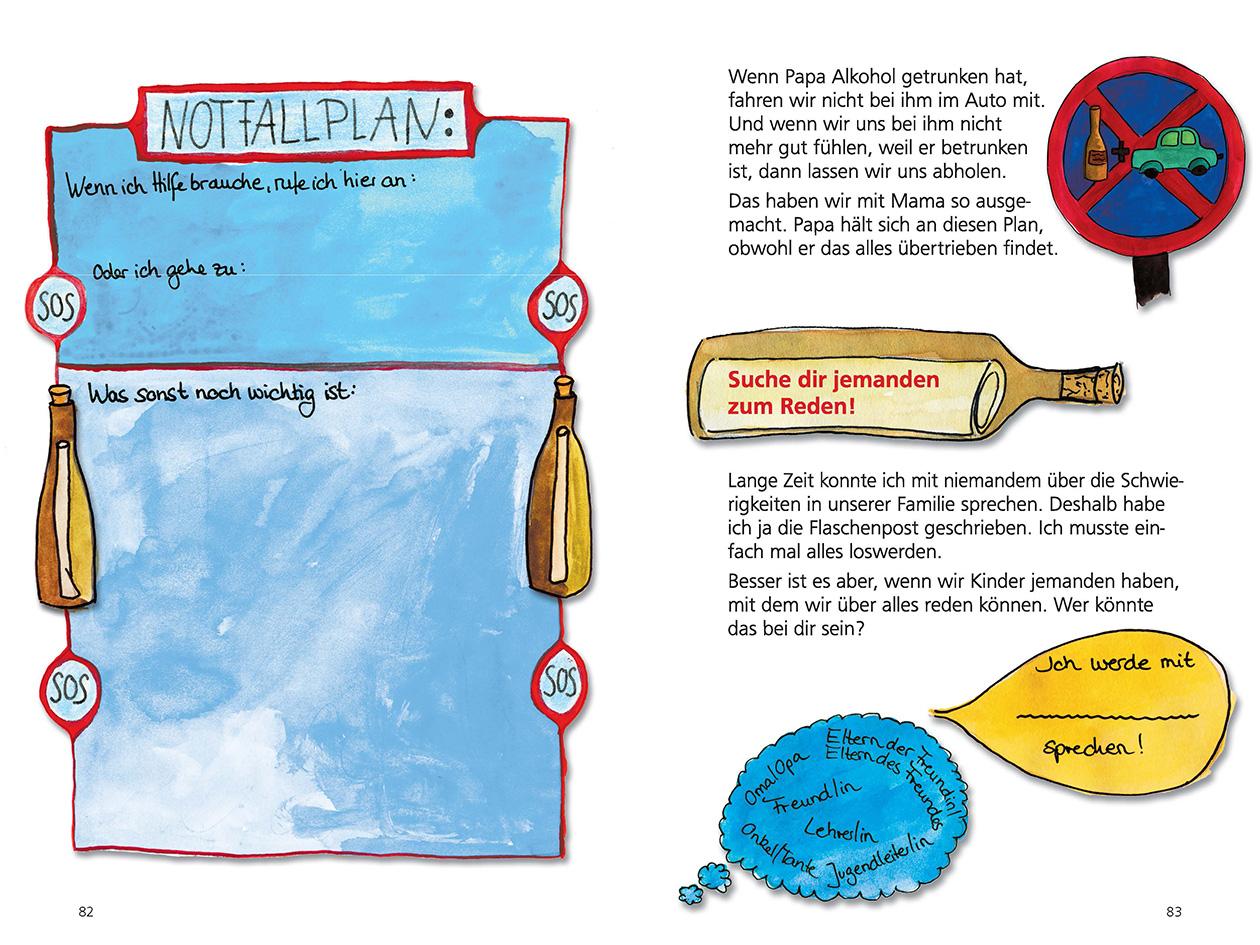 NOTFALLPLAN:
Wenn ich Hilfe brauche, rufe ich hier an:
Oder ich gehe zu:
SOS
SOS
Was sonst noch wichtig ist:
SOS
SOS
82
Wenn Papa Alkohol getrunken hat,
fahren wir nicht bei ihm im Auto mit.
Und wenn wir uns bei ihm nicht
mehr gut fühlen, weil er betrunken
ist, dann lassen wir uns abholen.
Das haben wir mit Mama so ausge-
macht. Papa hält sich an diesen Plan,
obwohl er das alles übertrieben findet.
+
Suche dir jemanden
zum Reden!
Lange Zeit konnte ich mit niemandem über die Schwie-
rigkeiten in unserer Familie sprechen. Deshalb habe
ich ja die Flaschenpost geschrieben. Ich musste ein-
fach mal alles loswerden.
Besser ist es aber, wenn wir Kinder jemanden haben,
mit dem wir über alles reden können. Wer könnte
das bei dir sein?
Ich werde mit
sprechen!
Eltern der Freundin/
Eltern des Freundes
Oma/Opa
Freund/in
Lehrer/in
Onkel/Tante
Jugendleiter/in
83